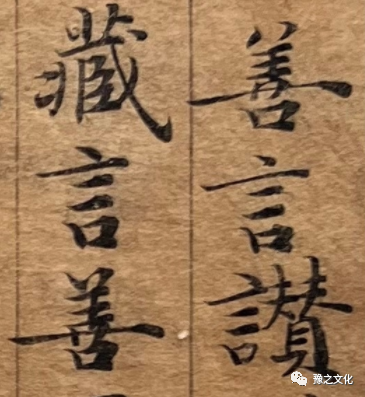 善言讃
藏言善
豫之文化